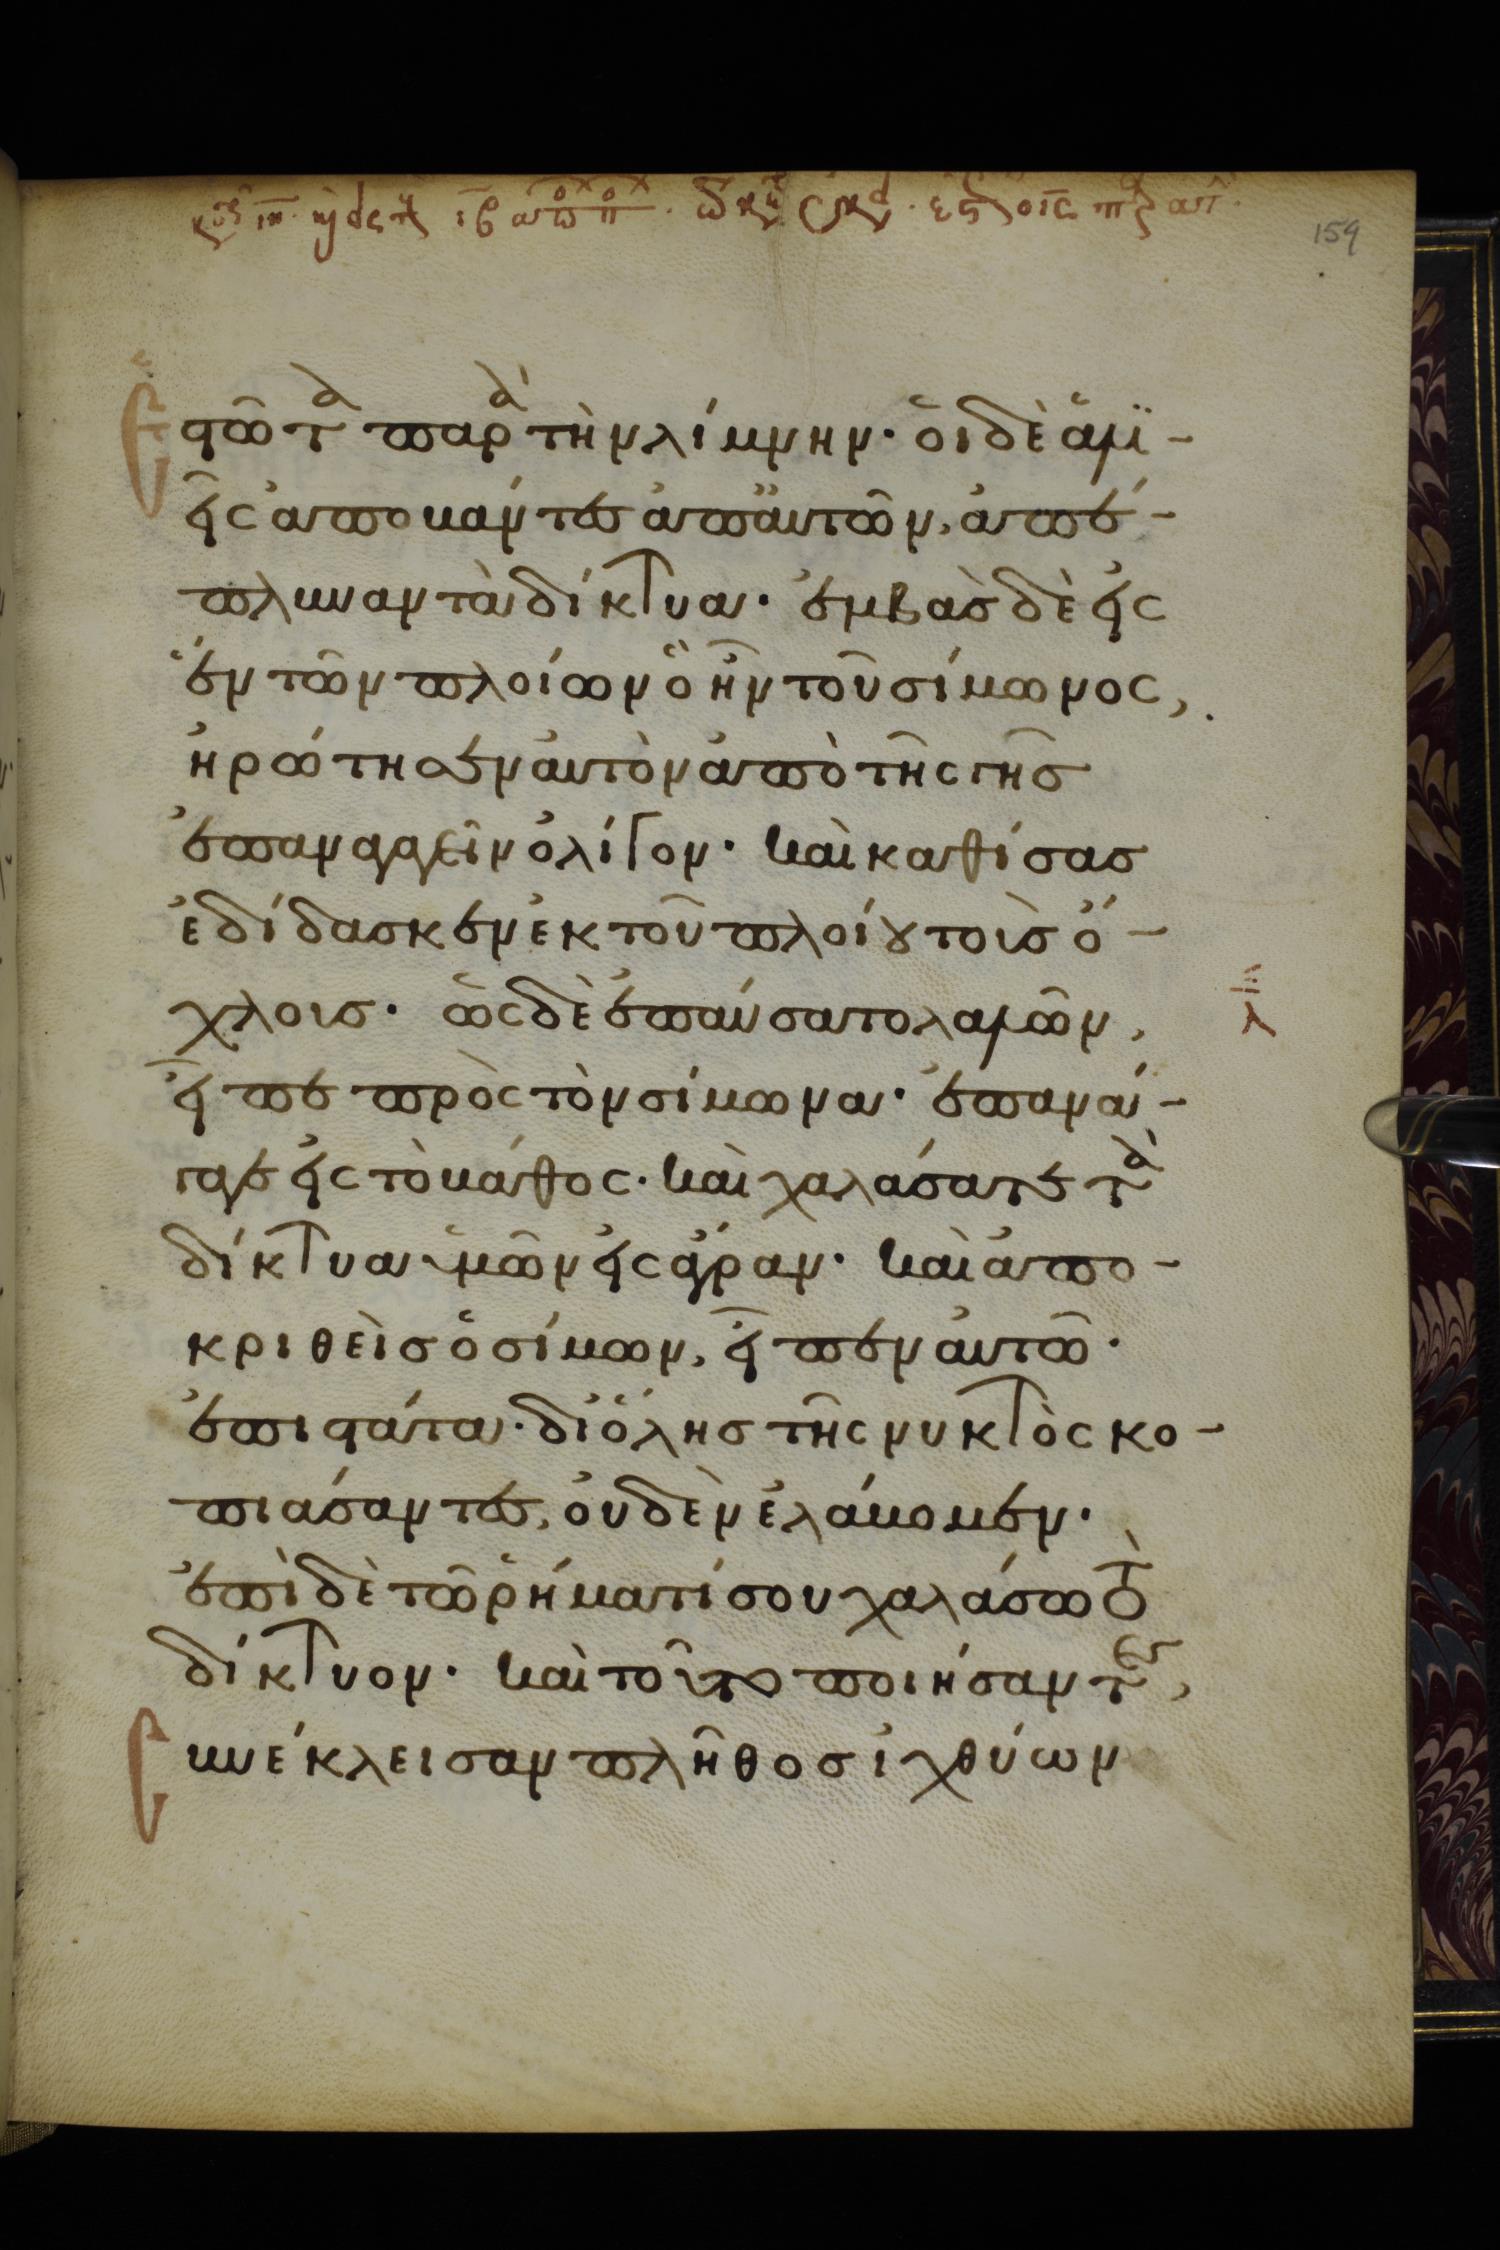 159
Ἑστῶτα παρὰ τὴν λίμνην· οἱ δὲ ἁλϊ-
εῖς ἀποβάντες ἀπ' αὐτῶν, ἀπέ-
πλυναν τὰ δίκτυα· ἐμβὰς δὲ εἰς
ἓν τῶν πλοίων ὃ ἦν τοῦ σίμωνος,
ἠρώτησεν αὐτὸν ἀπὸ τῆς γῆς
ἐπαναγαγεῖν ὀλίγον· καὶ καθίσας
ἐδίδασκεν ἐκ τοῦ πλοίου τοὶς ὄ-
χλοις· ὡς δὲ ἐπαύσατο λαλῶν,
εἶπε πρὸς τὸν σίμωνα· ἐπανά-
γαγε εἰς τὸ βάθος· καὶ χαλάσατε τὰ
δίκτυα ὑμῶν εἰς ἄγραν· καὶ ἀπο-
κριθεὶς ὁ σίμων, εἶπεν αὐτῶ·
ἐπιστάτα· δι' ὅλης τῆς νυκτὸς κο-
πιάσαντες, οὐδὲν ἐλάβομεν·
ἐπὶ δὲ τῶ ῥήματί σου χαλάσω τὸ
δίκτυον· καὶ τοῦτο ποιήσαντες,
Συνέκλεισαν πλῆθος ἰχθύων